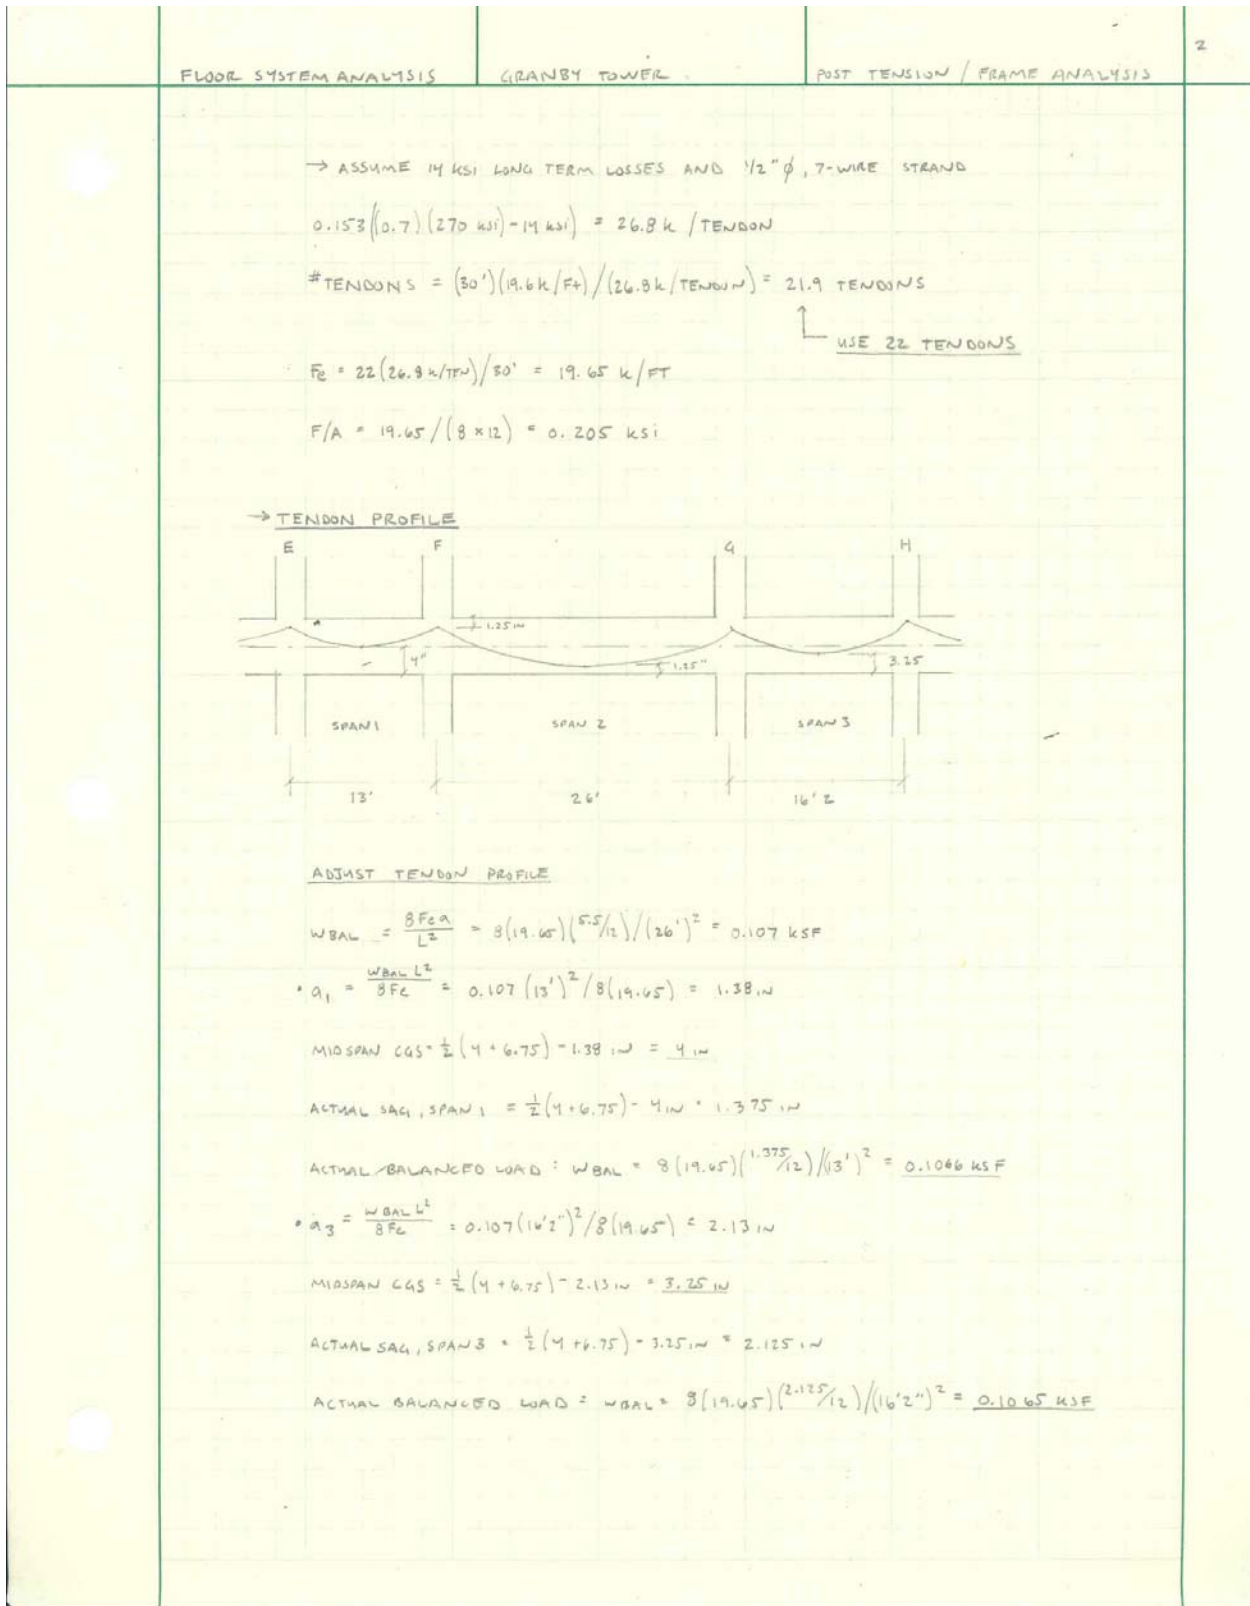 2
FLOOR SYSTEM ANALYSIS GRANBY TOWER POST TENSION / FRAME ANALYSIS
→ ASSUME 14 KSI LONG TERM LOSSES AND 1/2"ϕ, 7-WIRE STRAND
0.153((0.7)(270 ksi)-14 ksi) = 26.8 k /TENDON
#TENDONS = (30')(19.6k/Ft)/(26.8k/TENDON) = 21.9 TENDONS
USE 22 TENDONS
Fe = 22(26.8 k/TEN)/30' = 19.65 k/FT
F/A = 19.65/(8×12) = 0.205 ksi
→ TENDON PROFILE
E F G H
1.25 IN
4" 1.25" 3.25
SPAN 1 SPAN 2 SPAN 3
13' 26' 16'2
ADJUST TENDON PROFILE
WBAL = 8Fea/L² = 8(19.65)(5.5/12)/(26')² = 0.107 KSF
• a₁ = WBAL L²/8Fe = 0.107(13')²/8(19.65) = 1.38 IN
MIDSPAN CGS = 1/2(4+6.75)-1.38 IN = 4 IN
ACTUAL SAG, SPAN 1 = 1/2(4+6.75)-4IN = 1.375 IN
ACTUAL BALANCED LOAD: WBAL = 8(19.65)(1.375/12)/(13')² = 0.1066 KSF
• a₃ = WBAL L²/8Fe = 0.107(16'2")²/8(19.65) = 2.13 IN
MIDSPAN CGS = 1/2(4+6.75)-2.13 IN = 3.25 IN
ACTUAL SAG, SPAN 3 = 1/2(4+6.75)-3.25 IN = 2.125 IN
ACTUAL BALANCED LOAD = WBAL = 8(19.65)(2.125/12)/(16'2")² = 0.1065 KSF